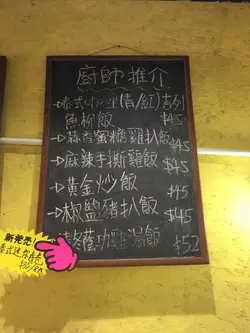 廚師推介
→泰式咖喱(青/紅)吉列
魚柳飯 $45
→蒜香蜜糖雞扒飯 $45
→麻辣手撕雞飯 $45
→黃金炒飯 $45
→椒鹽豬扒飯 $45
冬蔭功 湯飯 $52
新発売!
泰式迷你